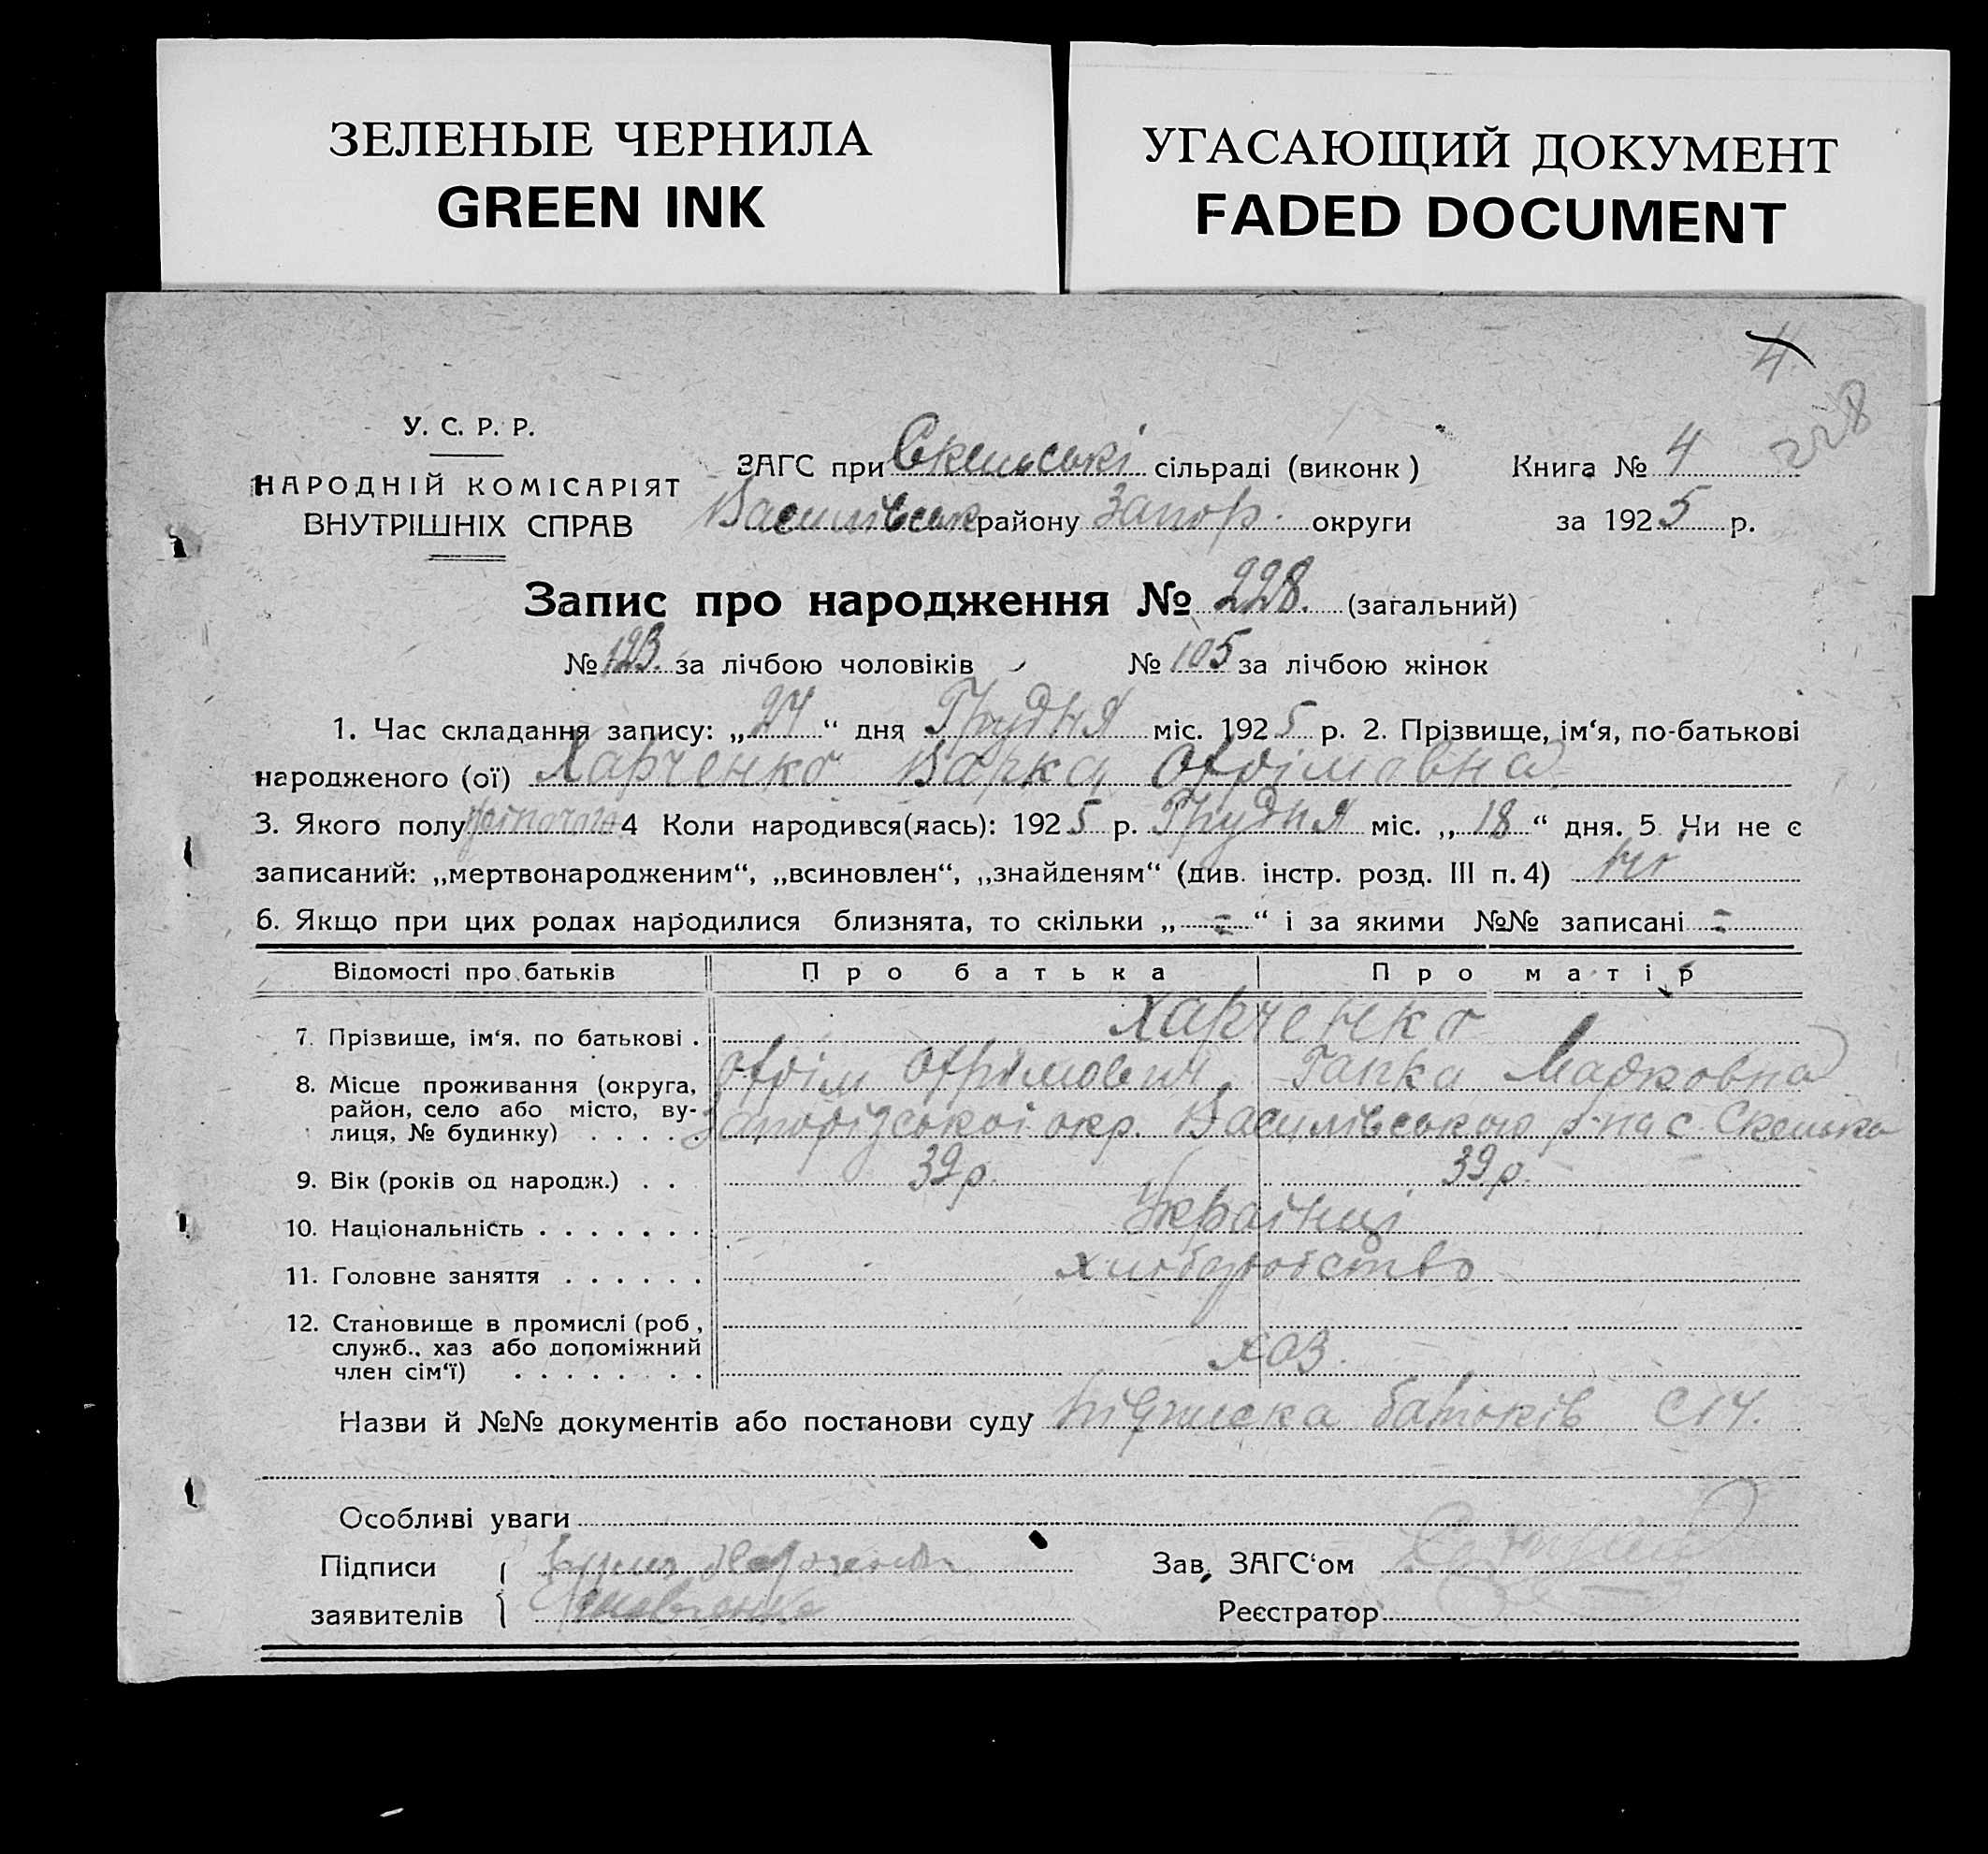 ЗЕЛЕНЫЕ ЧЕРНИЛА
GREEN INK
УГАСАЮЩИЙ ДОКУМЕНТ
FADED DOCUMENT
4
228
У. С. Р. Р.
НАРОДНІЙ КОМІСАРІЯТ
ВНУТРІШНІХ СПРАВ
ЗАГС при Скельські сільраді (виконк) Книга № 4
Василівськ району Запор. округи за 1925 р.
Запис про народження № 228. (загальний)
№ 123. за лічбою чоловіків № 105 за лічбою жінок
1. Час складання запису: „24“ дня Грудня міс. 1925 р. 2. Прізвище, ім‘я, по-батькові
народженого (ої) Харченко Варка
3. Якого полу 4 Коли народився(лась): 1925 р. Грудня міс. „18“ дня. 5 Чи не є
записаний: „мертвонародженим“, „всиновлен“, „знайденям“ (див. інстр. розд. III п. 4) ні
6. Якщо при цих родах народилися близнята, то скільки „=“ і за якими №№ записані =
Відомості про батьків Про батька Про матір
7. Прізвище, ім‘я, по батькові . Харченко
Гапка Марковна
8. Місце проживання (округа, район, село або місто, вулиця, № будинку) . . . . . Запорізськоі окр. Василівського р-на с. Скелька
9. Вік (років од народж.) . . 39 р. 39 р.
10. Національність . . . . . . . Українці
11. Головне заняття . . . . . . хліборобство
12. Становище в промислі (роб, служб., хаз або допоміжний член сім‘ї) . . . . . . . . хоз.
Назви й №№ документів або постанови суду підписка батьків
Особливі уваги
Підписи
заявителів
Зав. ЗАГС‘ом
Реєстратор